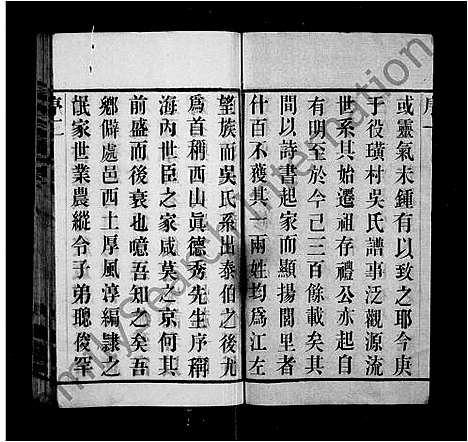 序一
或靈氣未鍾有以致之耶今庚
于役璜村吳氏譜事泛觀源流
世系其始遷祖存禮公亦起自
有明至於今已三百餘載矣其
間以詩書起家而顯揚閭里者
什百不獲其一兩姓均爲江左
望族而吳氏系出泰伯之後尤
爲首稱西山眞德秀先生序稱
海內世臣之家咸莫之京何其
前盛而後衰也噫吾知之矣吾
鄉僻處邑西土厚風淳編隸之
氓家世業農縱令子弟聰俊罕
序二
myjiSearch International